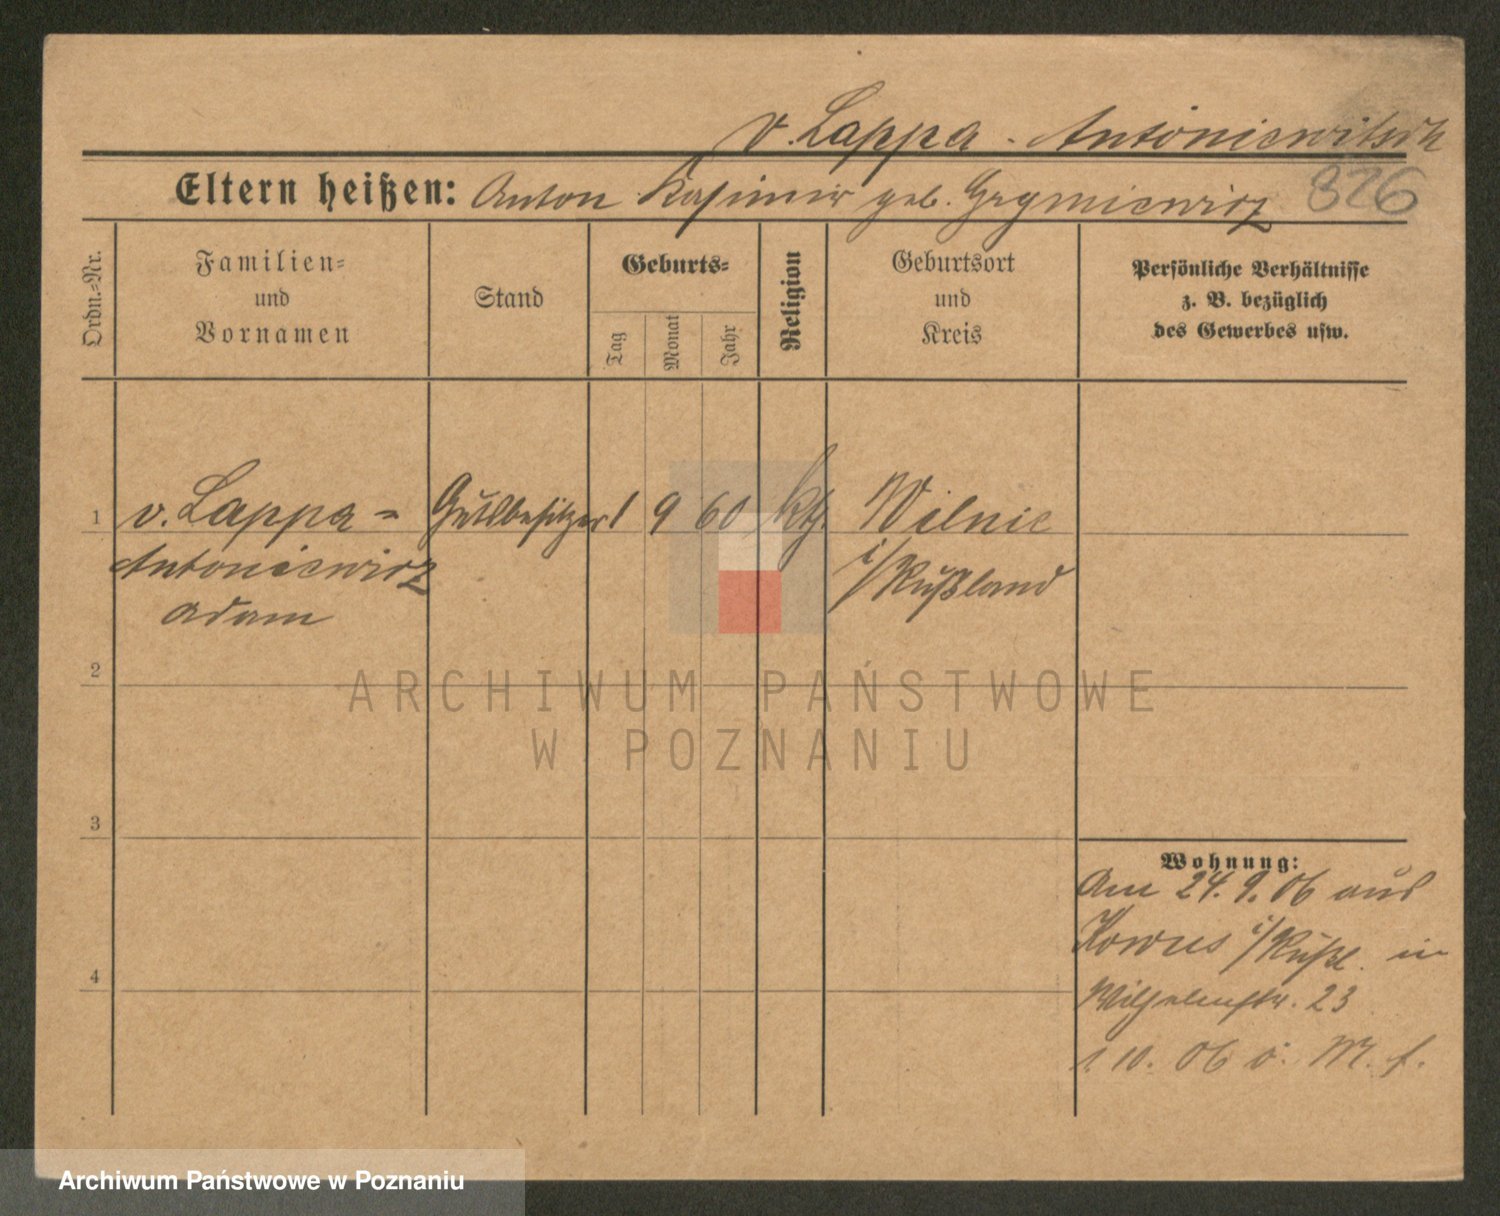 v. Lappa - Antoniewitsch
Eltern heißen: Anton Kasimir geb. Grymiewicz
326
Ordn.-Nr.
Familien-
und
Vornamen
Stand
Geburts-
Tag
Monat
Jahr
Religion
Geburtsort
und
Kreis
Persönliche Verhältnisse
z. B. bezüglich
des Gewerbes usw.
1 v. Lappa - Gutsbesitzer 1 9 60 kth. Wilnie
Antoniewicz i/Rußland
Adam
2
3
4
Wohnung:
Am 24. 9. 06 aus
i/Rußl. in
Wilhelmstr. 23
1. 10. 06 o. M. f.
ARCHIWUM PAŃSTWOWE
W POZNANIU
Archiwum Państwowe w Poznaniu